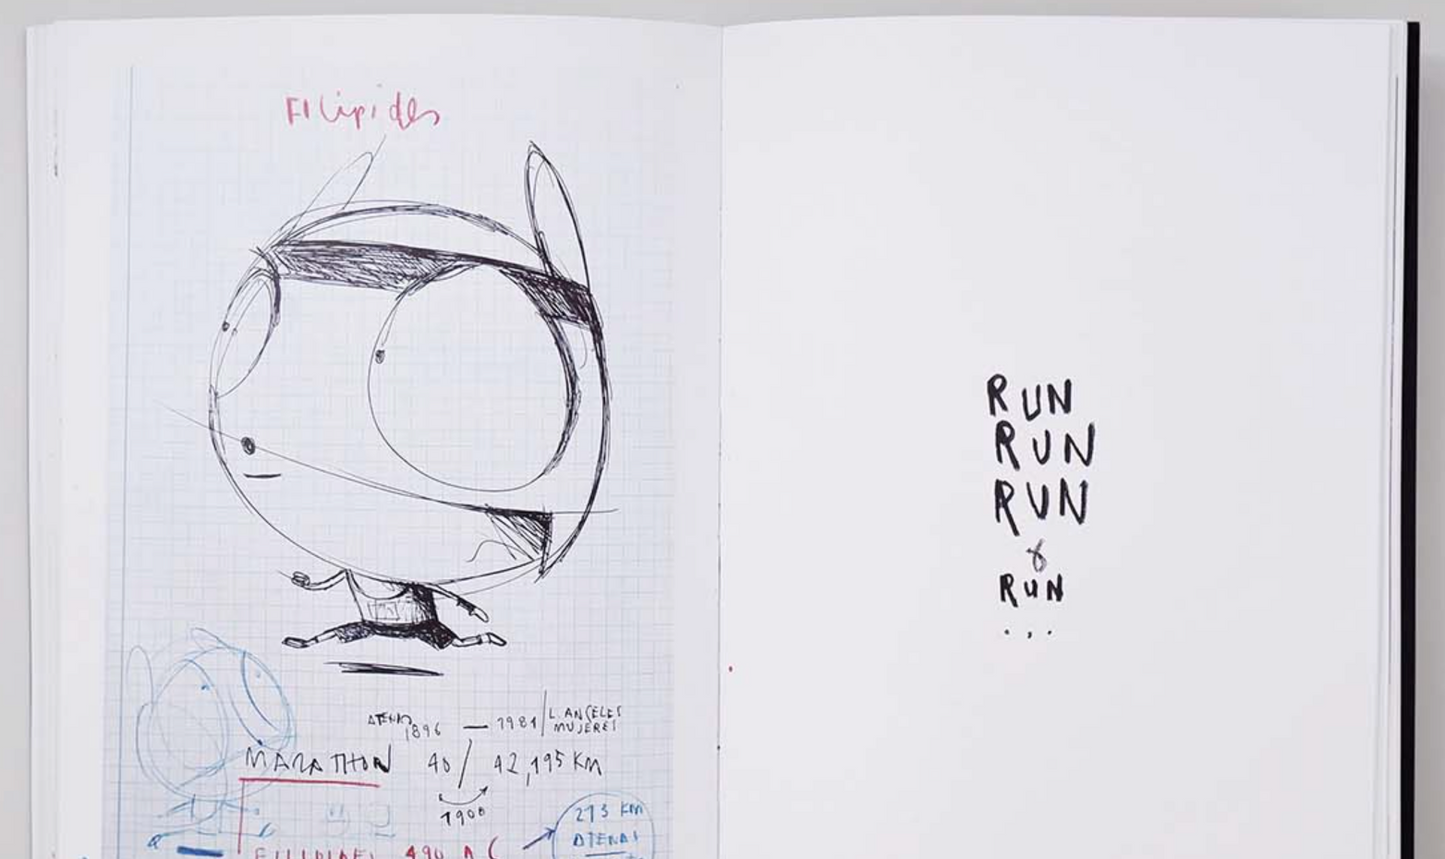 Filípides
ATENAS 1896 — 1981 / L. ANGELES MUJERES
MARATHON 40 / 42,195 KM
1908
213 KM
ATENAS
FILIPIDES 490 A.C
RUN
RUN
RUN
&
RUN
...